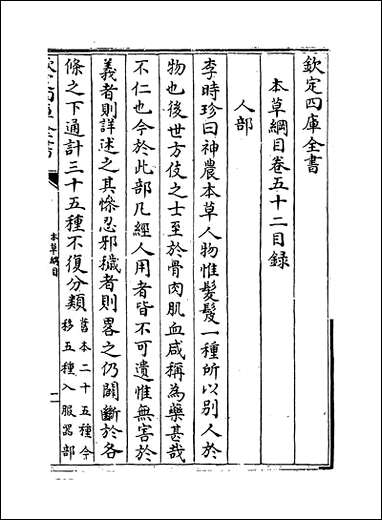 欽定四庫全書
本草綱目卷五十二目録
人部
李時珍曰神農本草人物惟髮髲一種所以別人於
物也後世方伎之士至於骨肉肌血咸稱為藥甚哉
不仁也今於此部凡經人用者皆不可遺惟無害於
義者則詳述之其慘忍邪穢者則畧之仍闢斷於各
條之下通計三十五種不復分類
舊本二十五種今
移五種入服器部
欽定四庫全書
本草綱目
一